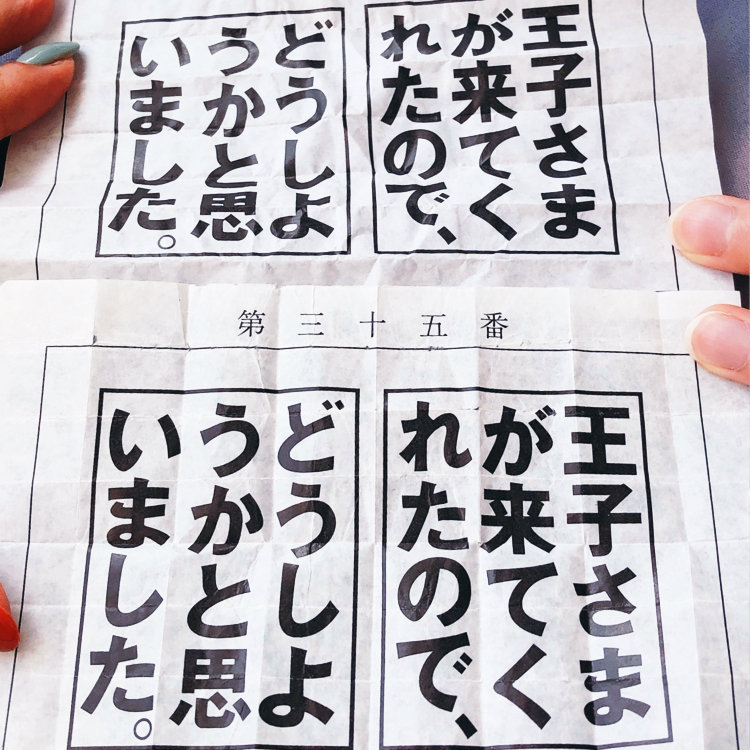 王子さま
が来てく
れたので、
どうしよ
うかと思
いました。
第三十五番
王子さま
が来てく
れたので、
どうしよ
うかと思
いました。